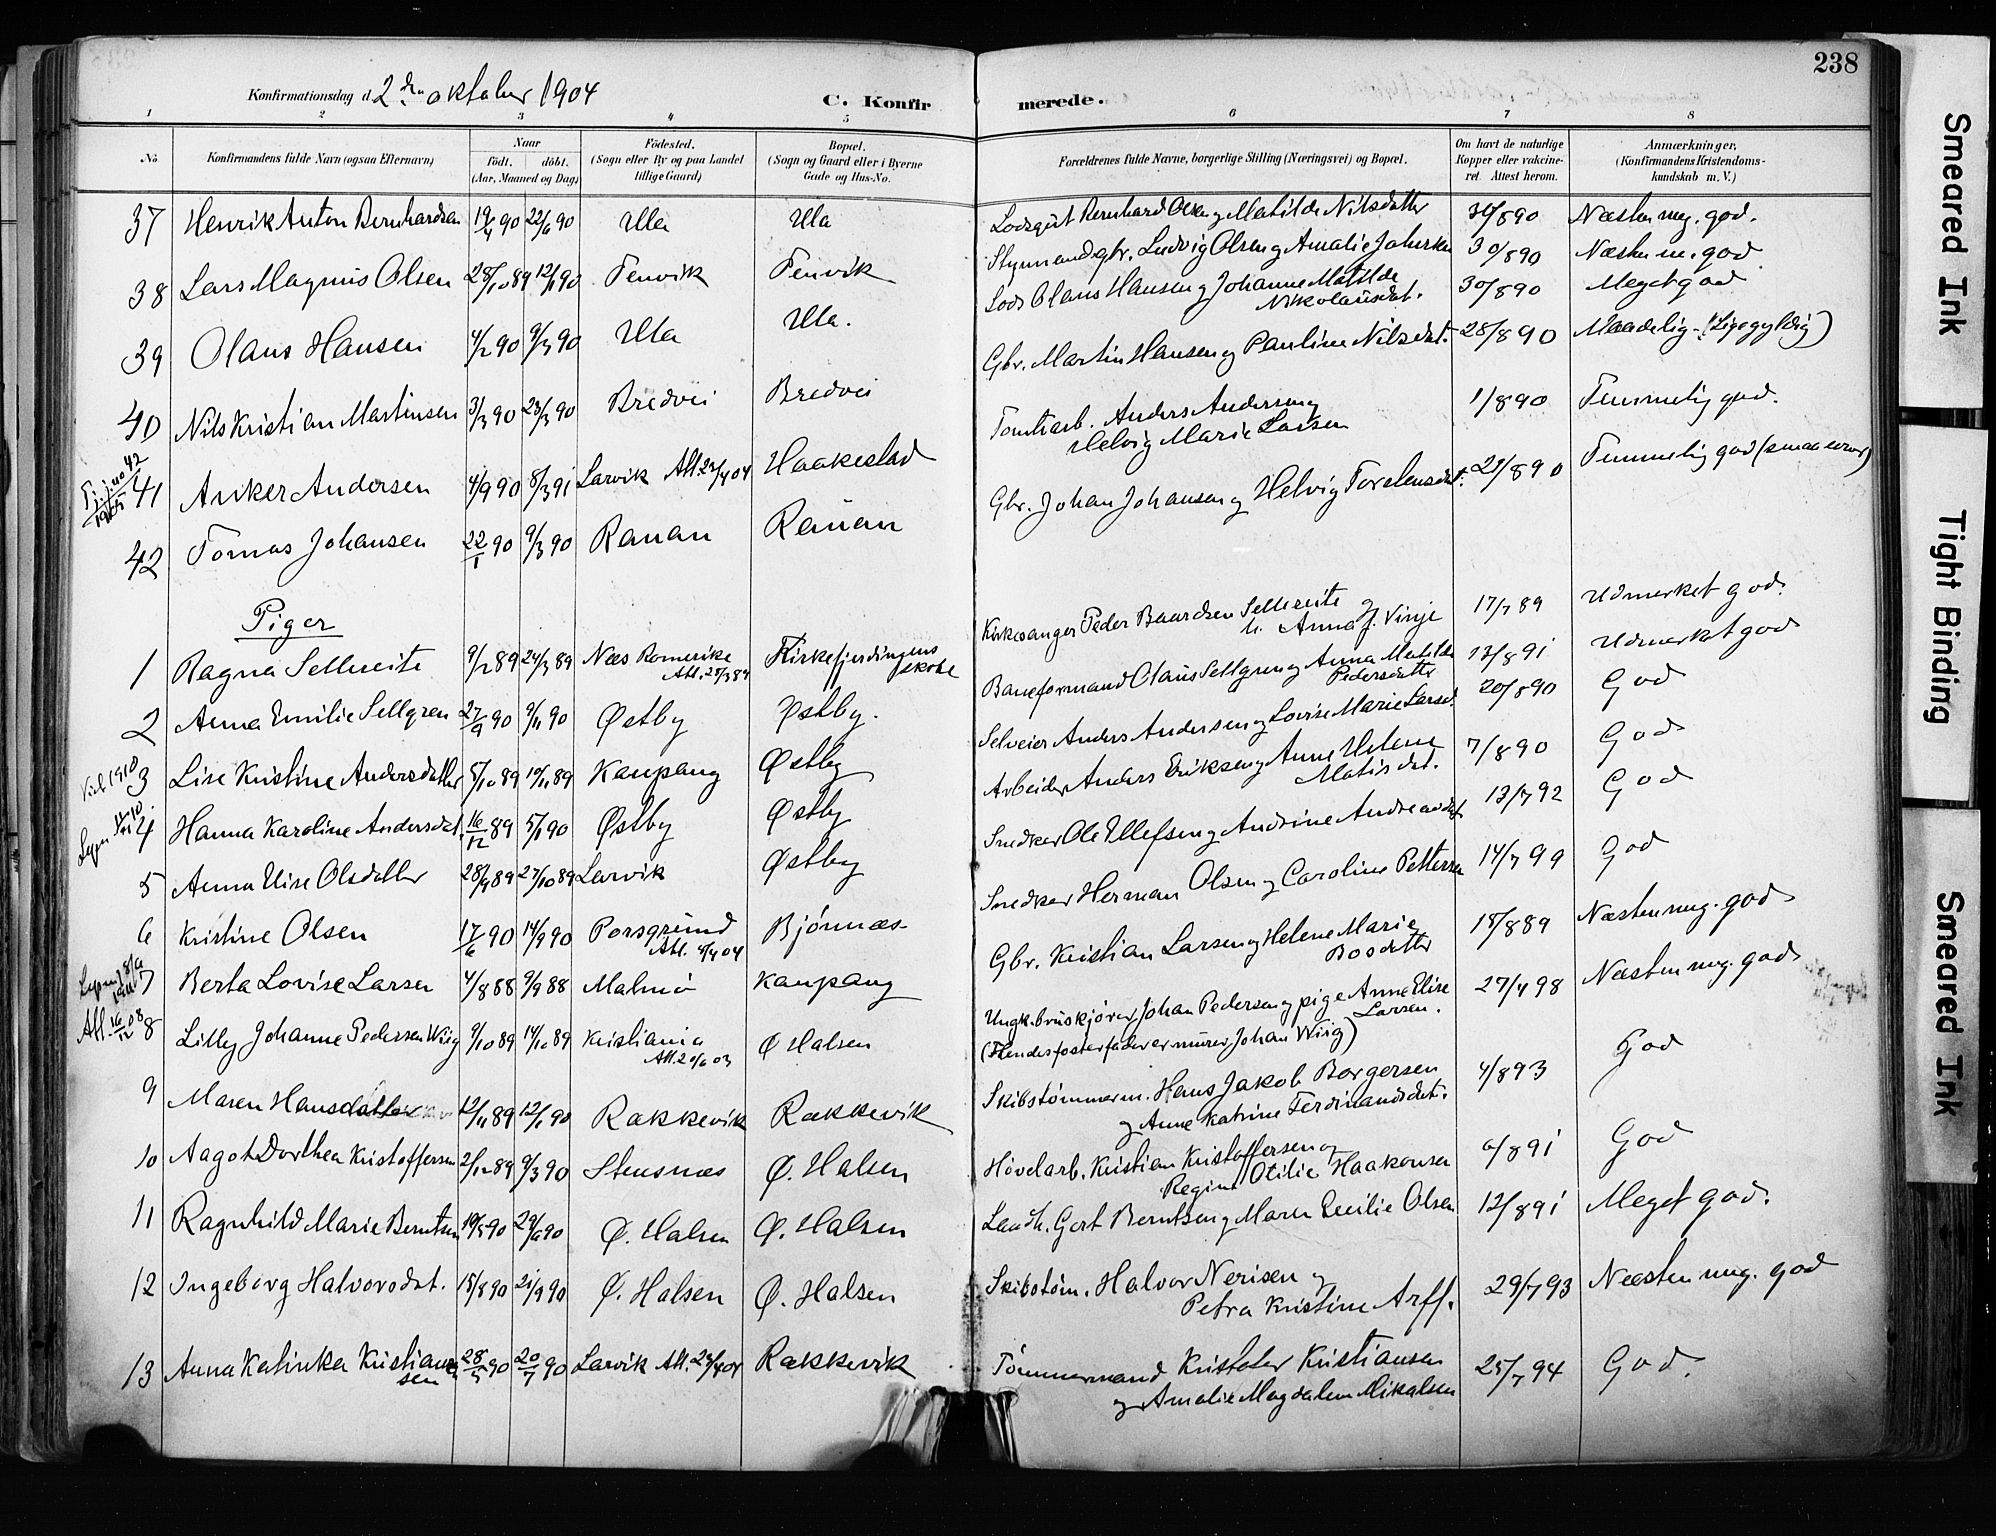 238
Konfirmationsdag d. 2den oktober 1904
C. Konfirmerede.
1 2 3 4 5 6 7 8
No
Konfirmandens fulde Navn (ogsaa Efternavn)
Naar
födt. döbt.
(Aar, Maaned og Dag)
Födested.
(Sogn eller By og paa Landet
tillige Gaard)
Bopæl.
(Sogn og Gaard eller i Byerne
Gade og Hus-No.
Forældrenes fulde Navne, borgerlige Stilling (Næringsvei) og Bopæl.
Om havt de naturlige
Kopper eller vakcine-
ret. Attest herom.
Anmærkninger.
(Konfirmandens Kristendoms-
kundskab m. V.)
37 Henrik Anton Bernhardsen 19/4 90 22/6 90 Ula Ula Lodsgut Bernhard Olsen og Matilde Nilsdatter 30/8 90 Næsten meg. god.
38 Lars Magnus Olsen 28/10 89 12/1 90 Fenvik Fenvik Styrmand, gbr. Ludvig Olsen og Amalie Johnsen 30/8 90 Næsten m. god
39 Olaus Hansen 4/2 90 9/3 90 Ula Ula. Lods Olaus Hansen og Johanne Matilde
Nikolausdat. 30/8 90 Meget god
40 Nils Kristian Martinsen 3/3 90 23/3 90 Bredvei Bredvei Gbr. Martin Hansen og Pauline Nilsdat. 28/8 90 Maadelig. (Ligegyldig)
41 Anker Andersen 4/9 90 8/3 91 Larvik Att. 22/4 04 Haakestad Tomtearb. Anders Andersen og
Helvig Marie Larsen 1/8 90 Temmelig god.
42 Tomas Johansen 22/1 90 9/3 90 Rauan Rauan Gbr. Johan Johansen og Helvig Torstensdat. 29/8 90 Temmelig god (smaa evner)
Piger
1 Ragna Sellereite 9/2 89 24/3 89 Næs Romerike
Att. 25/3 89 Kirkefjerdingens
skole Kirkesanger Peder Baardsen Sellereite og
h. Anna J. Vinje 17/7 89 Udmerket god.
2 Anna Emilie Sellgren 27/9 90 9/11 90 Østby Østby. Baneformand Olaus Sellgren og Anna Matilde
Pedersdatter 13/8 91 Udmerket god
Viet 1910
3 Lise Kristine Andersdatter 5/10 89 10/11 89 Kaupang Østby Selveier Anders Andersen og Lovise Marie Larsd. 20/8 90 God
4 Hanna Karoline Andersdat. 16/12 89 5/1 90 Østby Østby Arbeider Anders Eriksen og Anne Helene
Matisdat. 7/8 90 God
5 Anna Elise Olsdatter 28/9 89 27/10 89 Larvik Østby Snedker Ole Ellefsen og Andrine Andreasdat. 13/7 92 God
6 Kristine Olsen 17/6 90 14/9 90 Porsgrund
Att. 8/4 04 Bjönnæs Snedker Herman Olsen og Caroline Pettersen 14/7 99 God
7 Berta Lovise Larsen 4/8 88 9/9 88 Malmö Kaupang Gbr. Kristian Larsen og Helene Marie
Bosdatter 18/8 89 Næsten meg. god
Att. 16/12 08
8 Lilly Johanne Pedersen Wiig 9/10 89 14/10 89 Kristiania
Att. 20/6 03 Ø Halsen Ungk. bruskjører Johan Pedersen og pige Anne Elise
Larsen.
(Hendes fosterfader er murer Johan Wiig) 27/4 98 Næsten meg. god
9 Maren Hansdatter 12/11 89 12/1 90 Rakkevik Rakkevik Skibstömmerm. Hans Jakob Borgersen
og Anne Katrine Ferdinandsdat. 4/8 93 God
10 Aagot Dorthea Kristoffersen 2/12 89 9/3 90 Stensnæs Ø. Halsen Hövelarb. Kristian Kristoffersen og
Regine Otilie Haakonsen 6/8 91 God
11 Ragnhild Marie Berntsen 19/5 90 29/6 90 Ø. Halsen Ø. Halsen Landh. Gert Berntsen og Maren Emilie Olsen 12/8 91 Meget god.
12 Ingeborg Halvorsdat. 15/8 90 21/9 90 Ø. Halsen Ø. Halsen Skibstöm. Halvor Nerisen og
Petra Kristine Arff. 29/7 93 Næsten meg. god
13 Anna Katinka Kristiansen
sen 28/5 90 20/7 90 Larvik Att. 23/4 04 Rakkevik Tömmermand Kristofer Kristiansen
og Amalie Magdalene Mikalsen 25/7 94 God.
Smeared Ink
Tight Binding
Smeared Ink